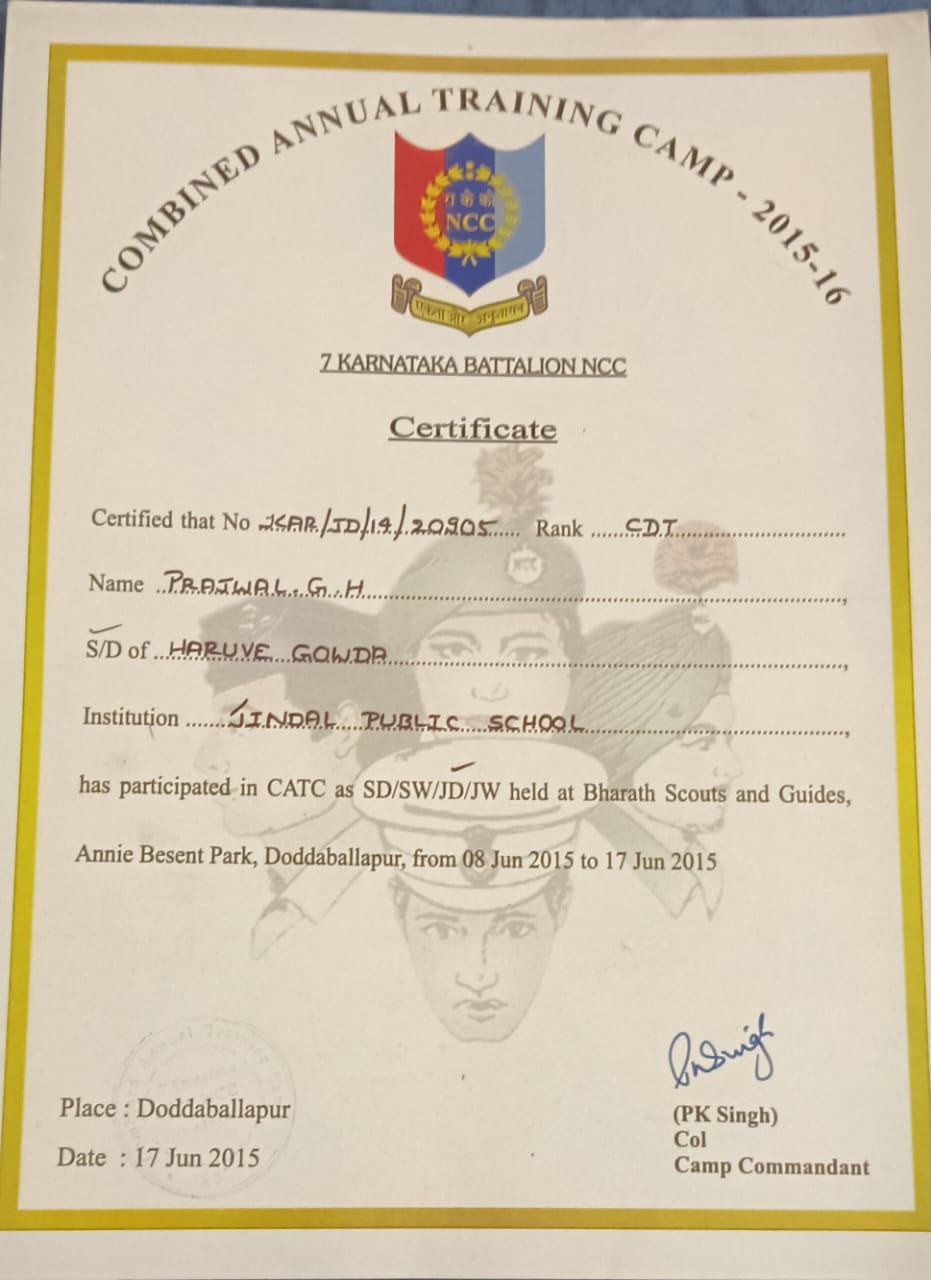 COMBINED ANNUAL TRAINING CAMP - 2015-16
रा के को
NCC
एकता और अनुशासन
7 KARNATAKA BATTALION NCC
Certificate
Certified that No KAR/JD/14/20905 Rank CDT
NCC
Name PRAJWAL. G. H
S/D of HARUVE GOWDA
Institution JINDAL PUBLIC SCHOOL
has participated in CATC as SD/SW/JD/JW held at Bharath Scouts and Guides,
Annie Besent Park, Doddaballapur, from 08 Jun 2015 to 17 Jun 2015
Annual Training
Karnataka
PKSingh
Place : Doddaballapur
(PK Singh)
Col
Date : 17 Jun 2015
Camp Commandant